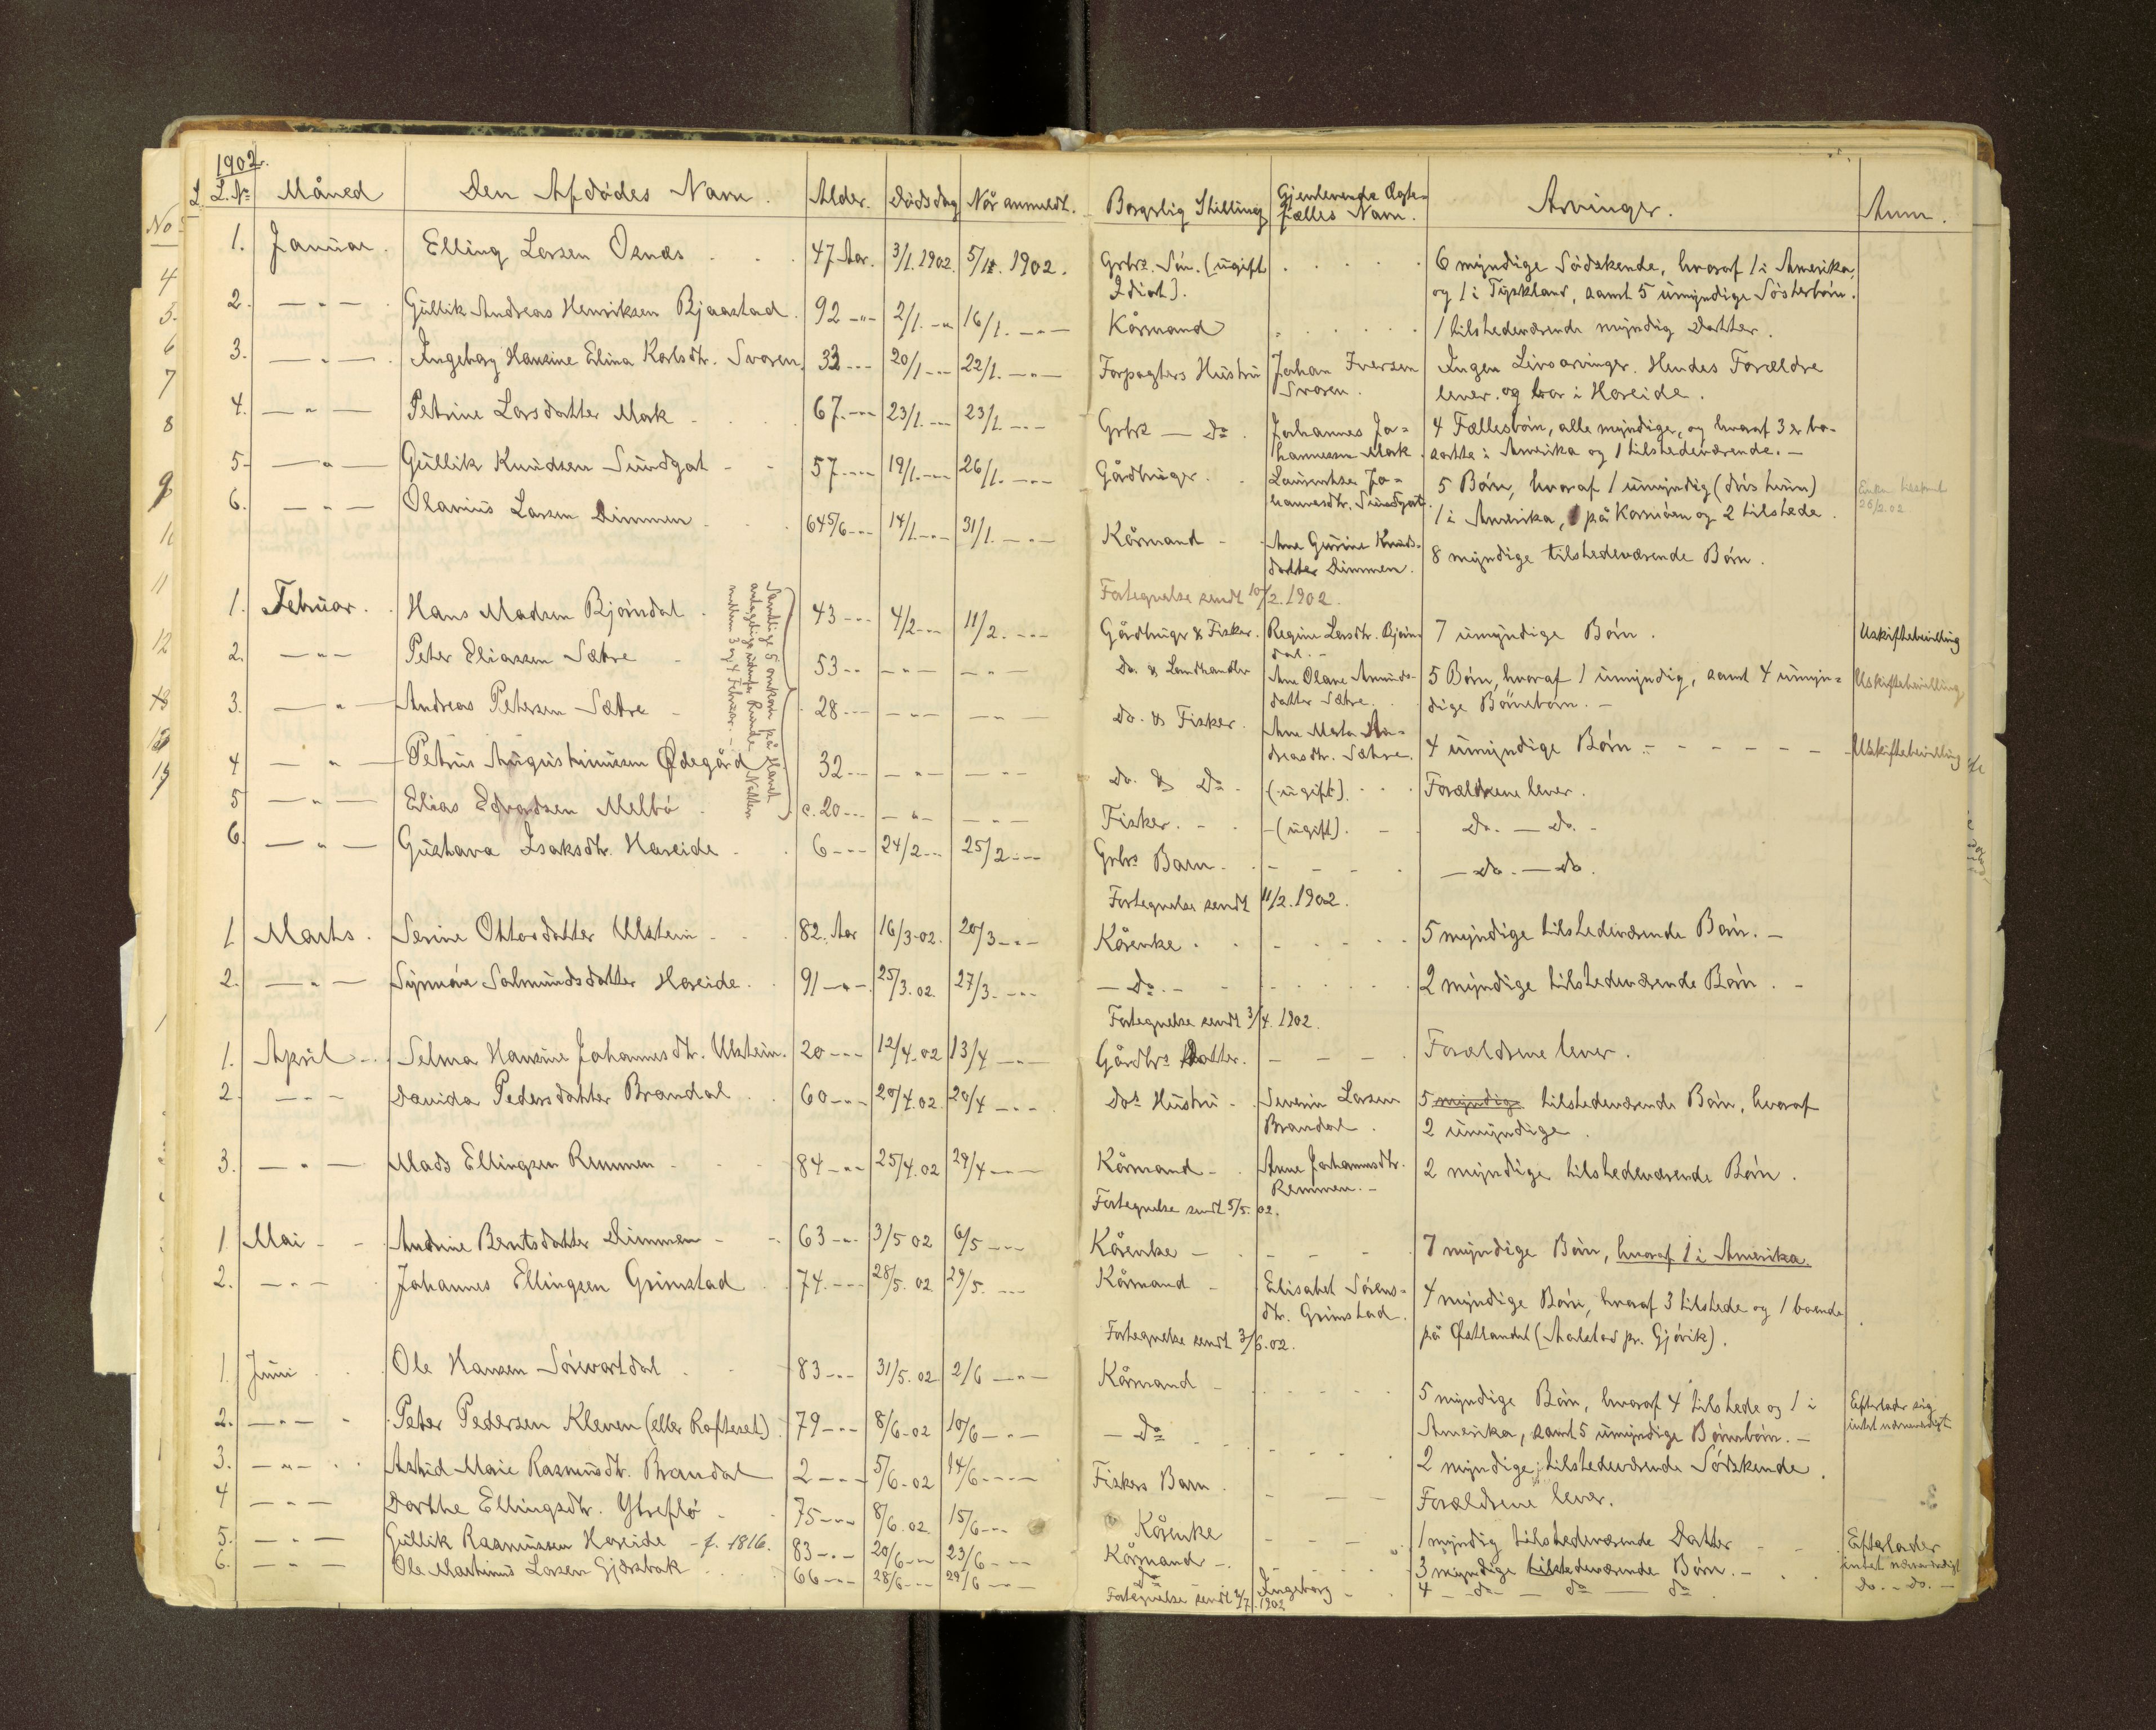 1902.
L. Nº Måned Den Afdødes Navn. Alder. Dødsdag Når anmeldt. Borgerlig Stilling Gjenlevende Ægte-
fælles Navn. Arvinger. Anm.
1. Januar. Elling Larsen Osnæs 47 Aar. 3/1. 1902. 5/1. 1902. Grbrs. Søn. (ugift 6 myndige Södskende, hvoraf 1 i Amerika,
Idiot). og 1 i Tyskland, samt 5 umyndige Søsterbørn.
2. —"— Gullik Andreas Henriksen Bjaastad. 92 —"— 2/1. —"— 16/1. —"— Kårmand 1 tilstedeværende myndig Datter.
3. —"— Ingeborg Hansine Elina Karlsdtr. Svoren, 33 —"— 20/1 —"— 22/1. —"— Forpagters Hustru Johan Iversen Ingen Livsarvinger. Hendes Forældre
Svoren. lever og bor i Hareide.
4. —"— Petrine Larsdatter Mork 67. —"— 23/1. —"— 23/1. —"— Grbrs — Do. Johannes Jo- 4 Fællesbørn, alle myndige, og hvoraf 3 er bo-
hannessen Mork. satte i Amerika og 1 tilstedeværende. —
5. —"— Gullik Knudsen Sundgot 57 —"— 19/1. —"— 26/1. —"— Gårdbruger. Laurentse Jo- 5 Børn, hvoraf 1 umyndig (døvstum)
hannesdtr. Sundgot. 1 i Amerika, 1 på Karmøen og 2 tilstede.
26/2.02
6. —"— Olanius Larsen Dimmen 64 5/6 —"— 14/1. —"— 31/1. —"— Kårmand Ane Gurine Knuds- 8 myndige tilstedeværende Børn.
datter Dimmen.
Fortegnelse sendt 10/2. 1902.
1. Februar. Hans Madsen Bjørndal 43 —"— 4/2 —"— 11/2. —"— Gårdbruger & Fisker. Regine Larsdtr. Bjørn- 7 umyndige Børn. Uskiftebevilling
dal. —
2. —"— Peter Eliassen Sætre 53 —"— —"— —"— Do. & Landhandler Ane Olave Amunds- 5 Børn, hvoraf 1 umyndig, samt 4 umyn- Uskiftebevilling
datter Sætre. dige Børnebørn. —
3. —"— Andreas Petersen Sætre 28 —"— —"— —"— Do. & Fisker. Ane Marta An- 4 umyndige Børn. Uskiftebevilling
dreasdtr. Sætre.
4 —"— Petrus Augustinussen Ødegård 32 —"— —"— —"— Do. & Do. (ugift) Forældrene lever.
5 —"— Elias Edvardsen Melbø c. 20 —"— —"— —"— Fisker. (ugift). Do. — Do.
Samtlige 5 omkom på Havet
antagelig udenfor Runde Natten
mellem 3 og 4 Februar. —
6. —"— Gustava Isaksdtr. Hareide 6 —"— 24/2 —"— 25/2 —"— Grbrs Barn. — Do. — Do.
Fortegnelse sendt 11/2. 1902.
1 Marts. Serine Ottosdatter Ulstein 82. Aar 16/3-02. 20/3 —"— Kårenke. 5 myndige tilstedeværende Børn. —
2. —"— Synnøve Salmundsdatter Hareide. 91 —"— 25/3. 02. 27/3. —"— — Do. — 2 myndige tilstedeværende Børn. —
Fortegnelse sendt 3/4. 1902.
1. April Selma Hansine Johannesdtr. Ulstein. 20 —"— 12/4-02 13/4 —"— Gårdbrs Datter. Forældrene lever.
2 —"— Davida Pedersdatter Brandal 60 —"— 20/4.02. 20/4 —"— Dos Hustru Severin Larsen 5 myndige tilstedeværende Børn, hvoraf
Brandal. 2 umyndige.
3. —"— Mads Ellingsen Remmen 84 —"— 25/4. 02 29/4 —"— Kårmand Anne Johannesdtr. 2 myndige tilstedeværende Børn.
Remmen. —
Fortegnelse sendt 5/5. 02.
1 Mai Andrine Berntsdatter Dimmen 63 —"— 3/5 02 6/5 —"— Kårenke 7 myndige Børn, hvoraf 1 i Amerika.
2. —"— Johannes Ellingsen Grimstad 74. —"— 28/5. 02. 29/5. —"— Kårmand Elisabet Sörens- 4 myndige Børn, hvoraf 3 tilstede og 1 boende
dtr. Grimstad. på Østlandet (Aalstad pr. Gjøvik).
Fortegnelse sendt 3/6.02.
1. Juni Ole Hansen Sørevartdal 83 —"— 31/5. 02 2/6 —"— Kårmand 5 myndige Børn, hvoraf 4 tilstede og 1 i Efterlader sig
Amerika, samt 5 umyndige Børnebørn. — intet nævneværdigt
2. —"— Peter Pedersen Kleven (eller Rafteset) 79 —"— 8/6-02 10/6 —"— — Do 2 myndige, tilstedeværende Södskende.
3. —"— Astrid Marie Rasmusdtr. Brandal 2 —"— 5/6-02 14/6 —"— Fiskers Barn. Forældrene lever.
4 —"— Dorthe Ellingsdtr. Ytreflø 75 —"— 8/6.02. 15/6 —"— Kårenke 1 myndig tilstedeværende Datter Efterlader
5. —"— Gullik Rasmussen Hareide - f. 1816. 83 —"— 20/6 —"— 23/6 —"— Kårmand 3 myndige tilstedeværende Børn. — intet nævneværdigt
6. —"— Ole Martinus Larsen Gjærsbak 66 —"— 28/6 —"— 29/6 —"— Do Ingeborg 4 — do — do — do Do. — Do. —
Fortegnelse sendt 2/7. 1902